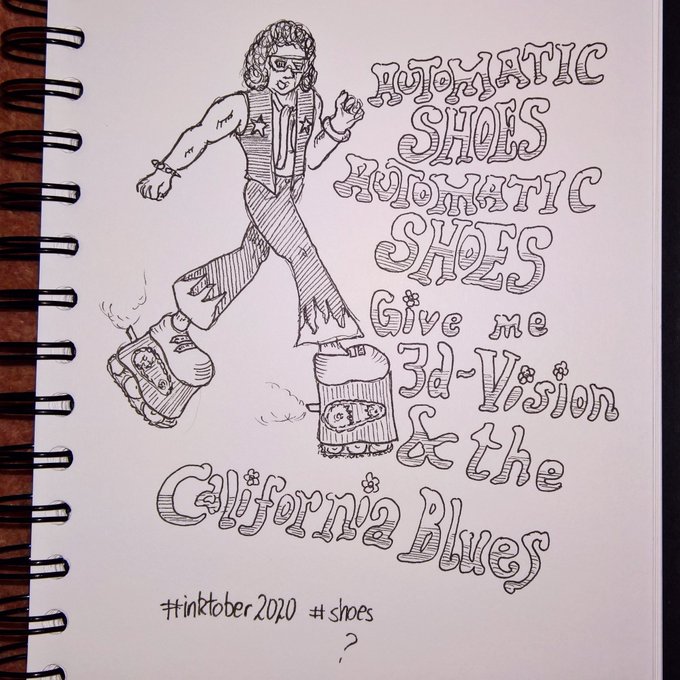 AUTOMATIC
SHOES
AUTOMATIC
SHOES
Give me
3d-Vision
& the
California Blues
#inktober2020 #shoes
?